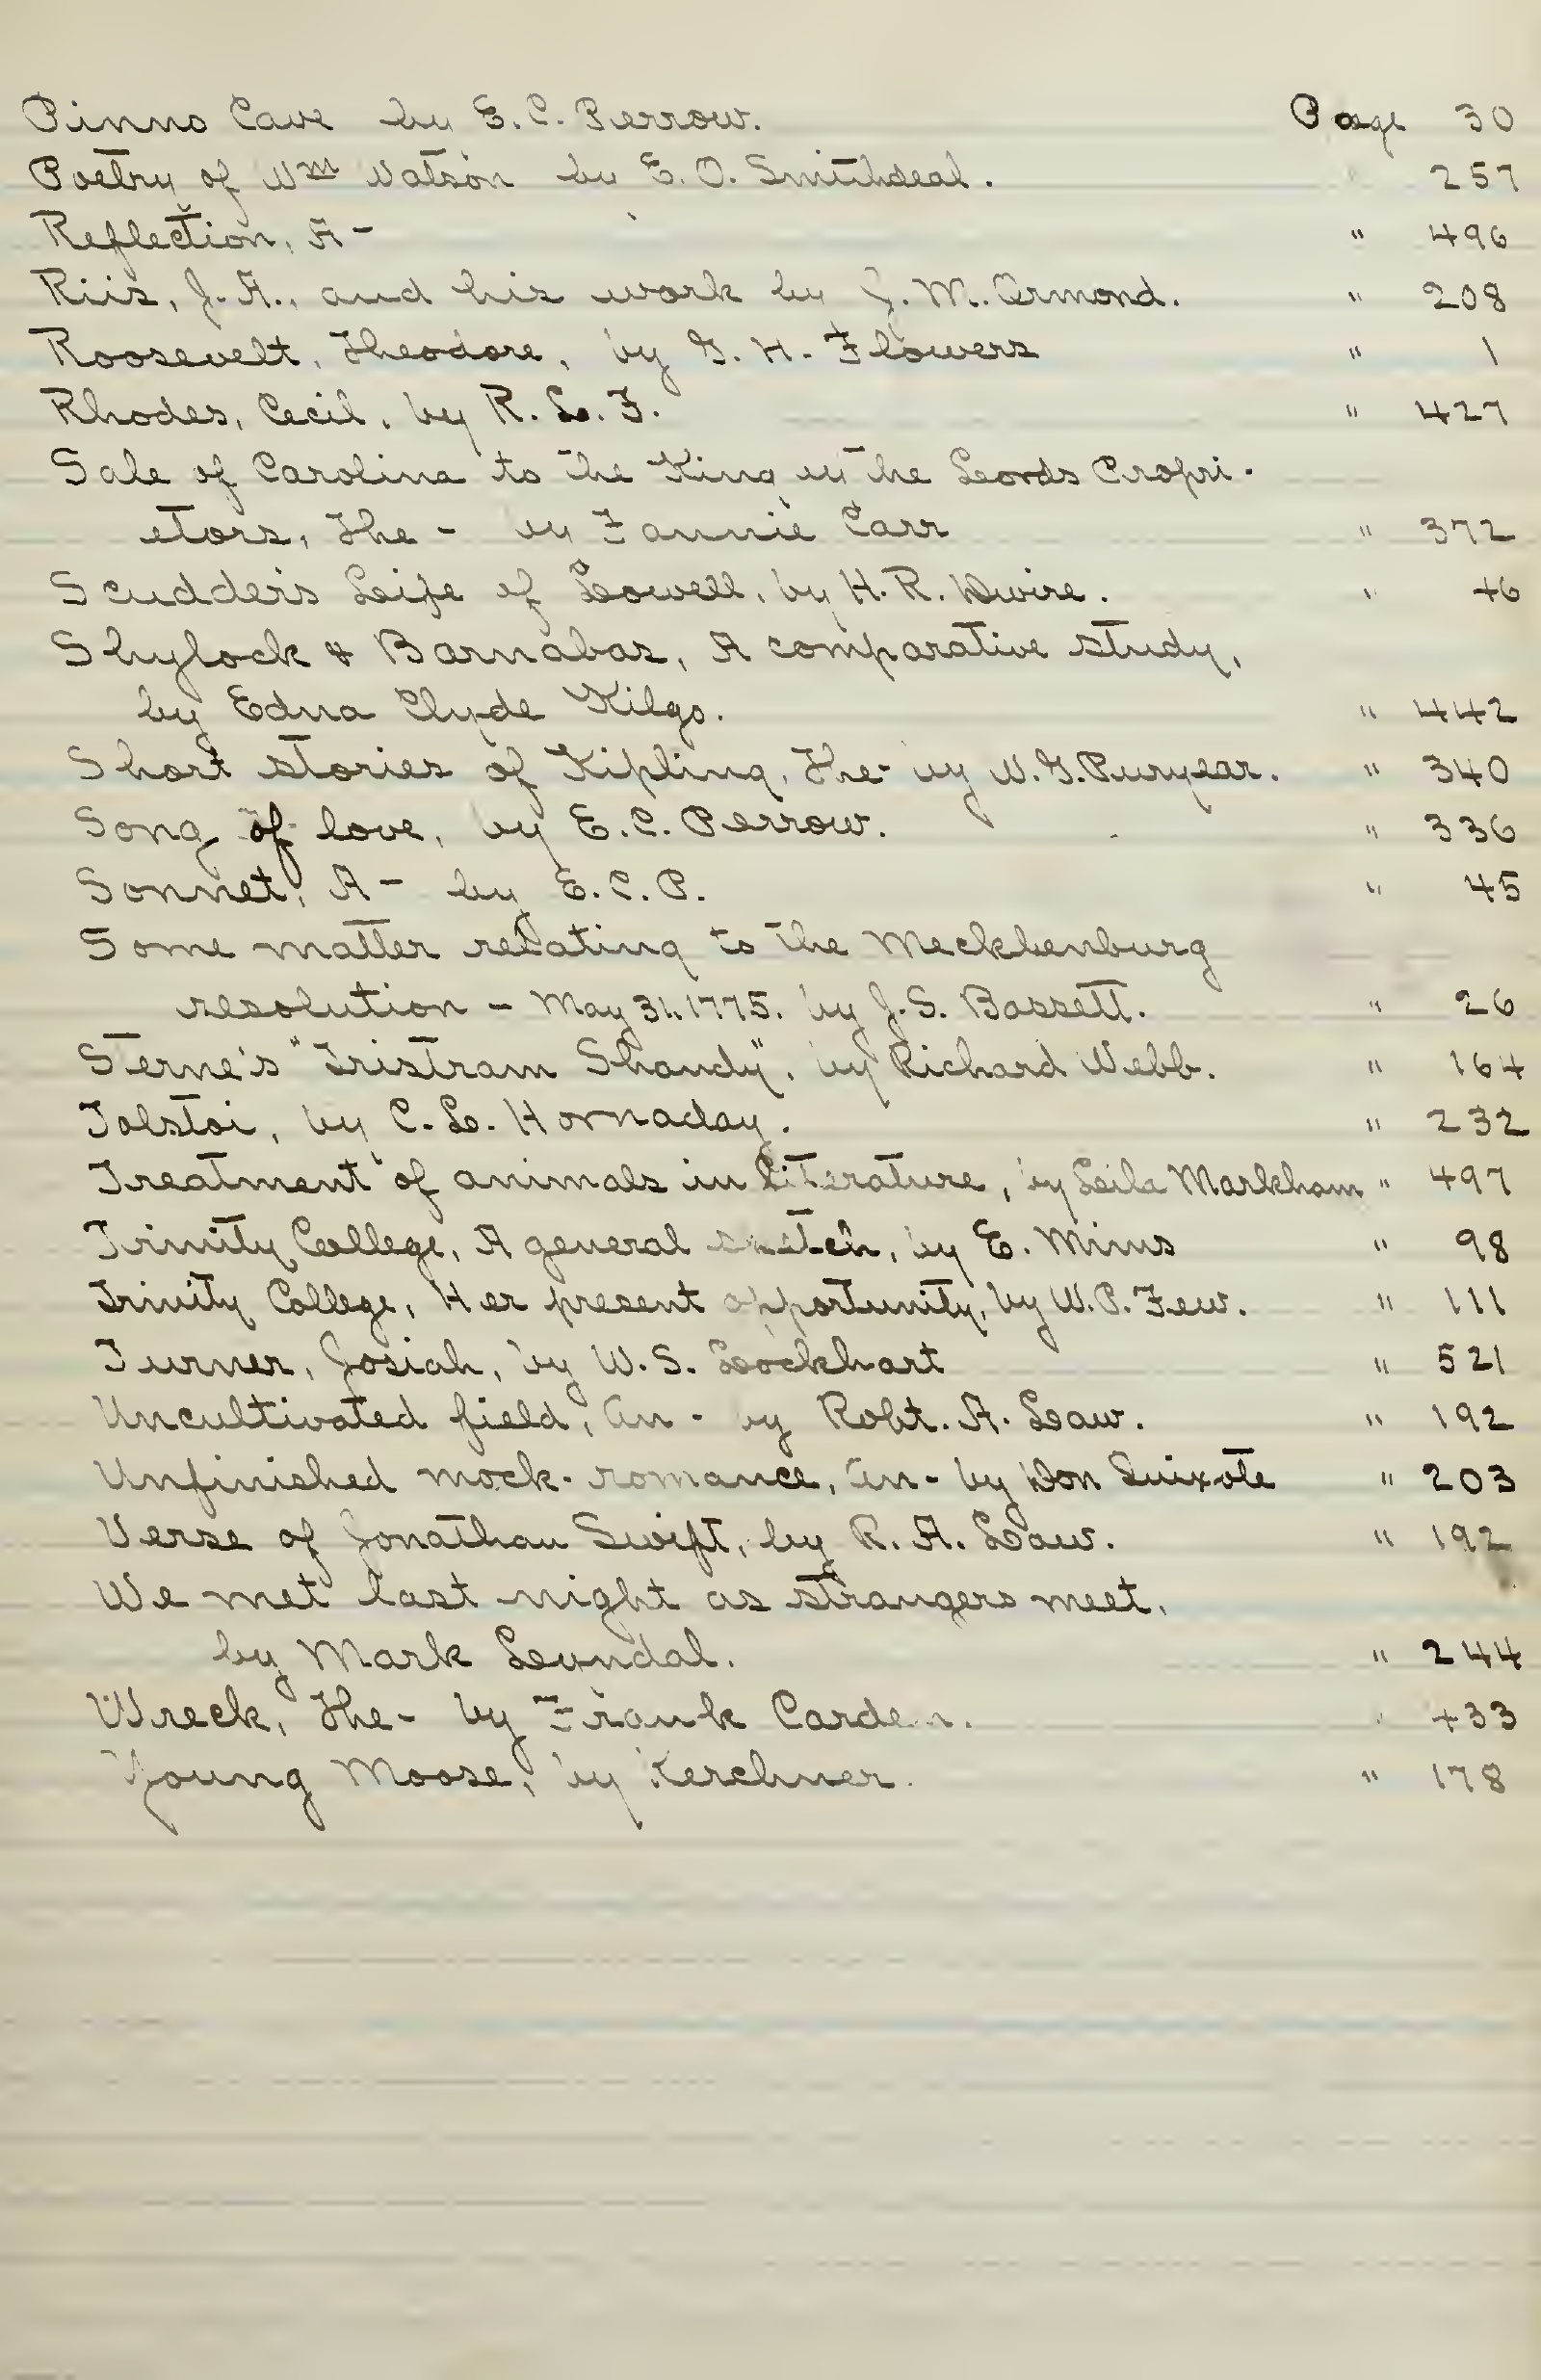 Pinno Cave by E. C. Perrow. Page 30
Poetry of Wm Watson by E. O. Smithdeal. 257
Reflection, A - " 496
Riis, J. A., and his work by J. M. Ormond. " 208
Roosevelt, Theodore, by G. H. Flowers " 1
Rhodes, Cecil, by R. L. F. " 427
Sale of Carolina to the King by the Lords Propri-
etors, The - by Fannie Carr " 372
Scudder's Life of Lowell, by H. R. Dwire. " 46
Shylock & Barnabas, A comparative study,
by Edna Clyde Kilgo. " 442
Short stories of Kipling, The - by W. G. Puryear. " 340
Song of love, by E. C. Perrow. " 336
Sonnet, A - by E. C. P. " 45
Some matter relating to the Mecklenburg
resolution - May 31, 1775, by J. S. Bassett. " 26
Sterne's "Tristram Shandy", by Richard Webb. " 164
Tolstoi, by C. L. Hornaday. " 232
Treatment of animals in literature, by Leila Markham " 497
Trinity College, A general sketch, by E. Mims " 98
Trinity College, Her present opportunity, by W. P. Few. " 111
Turner, Josiah, by W. S. Lockhart " 521
Uncultivated field, An - by Robt. A. Law. " 192
Unfinished mock-romance, An - by Don Quixote " 203
Verse of Jonathan Swift, by R. A. Law. " 192
We met last night as strangers meet,
by Mark Lyndal. " 244
Wreck, The - by Frank Carden. " 433
Young Moose, by Kerchner. " 178